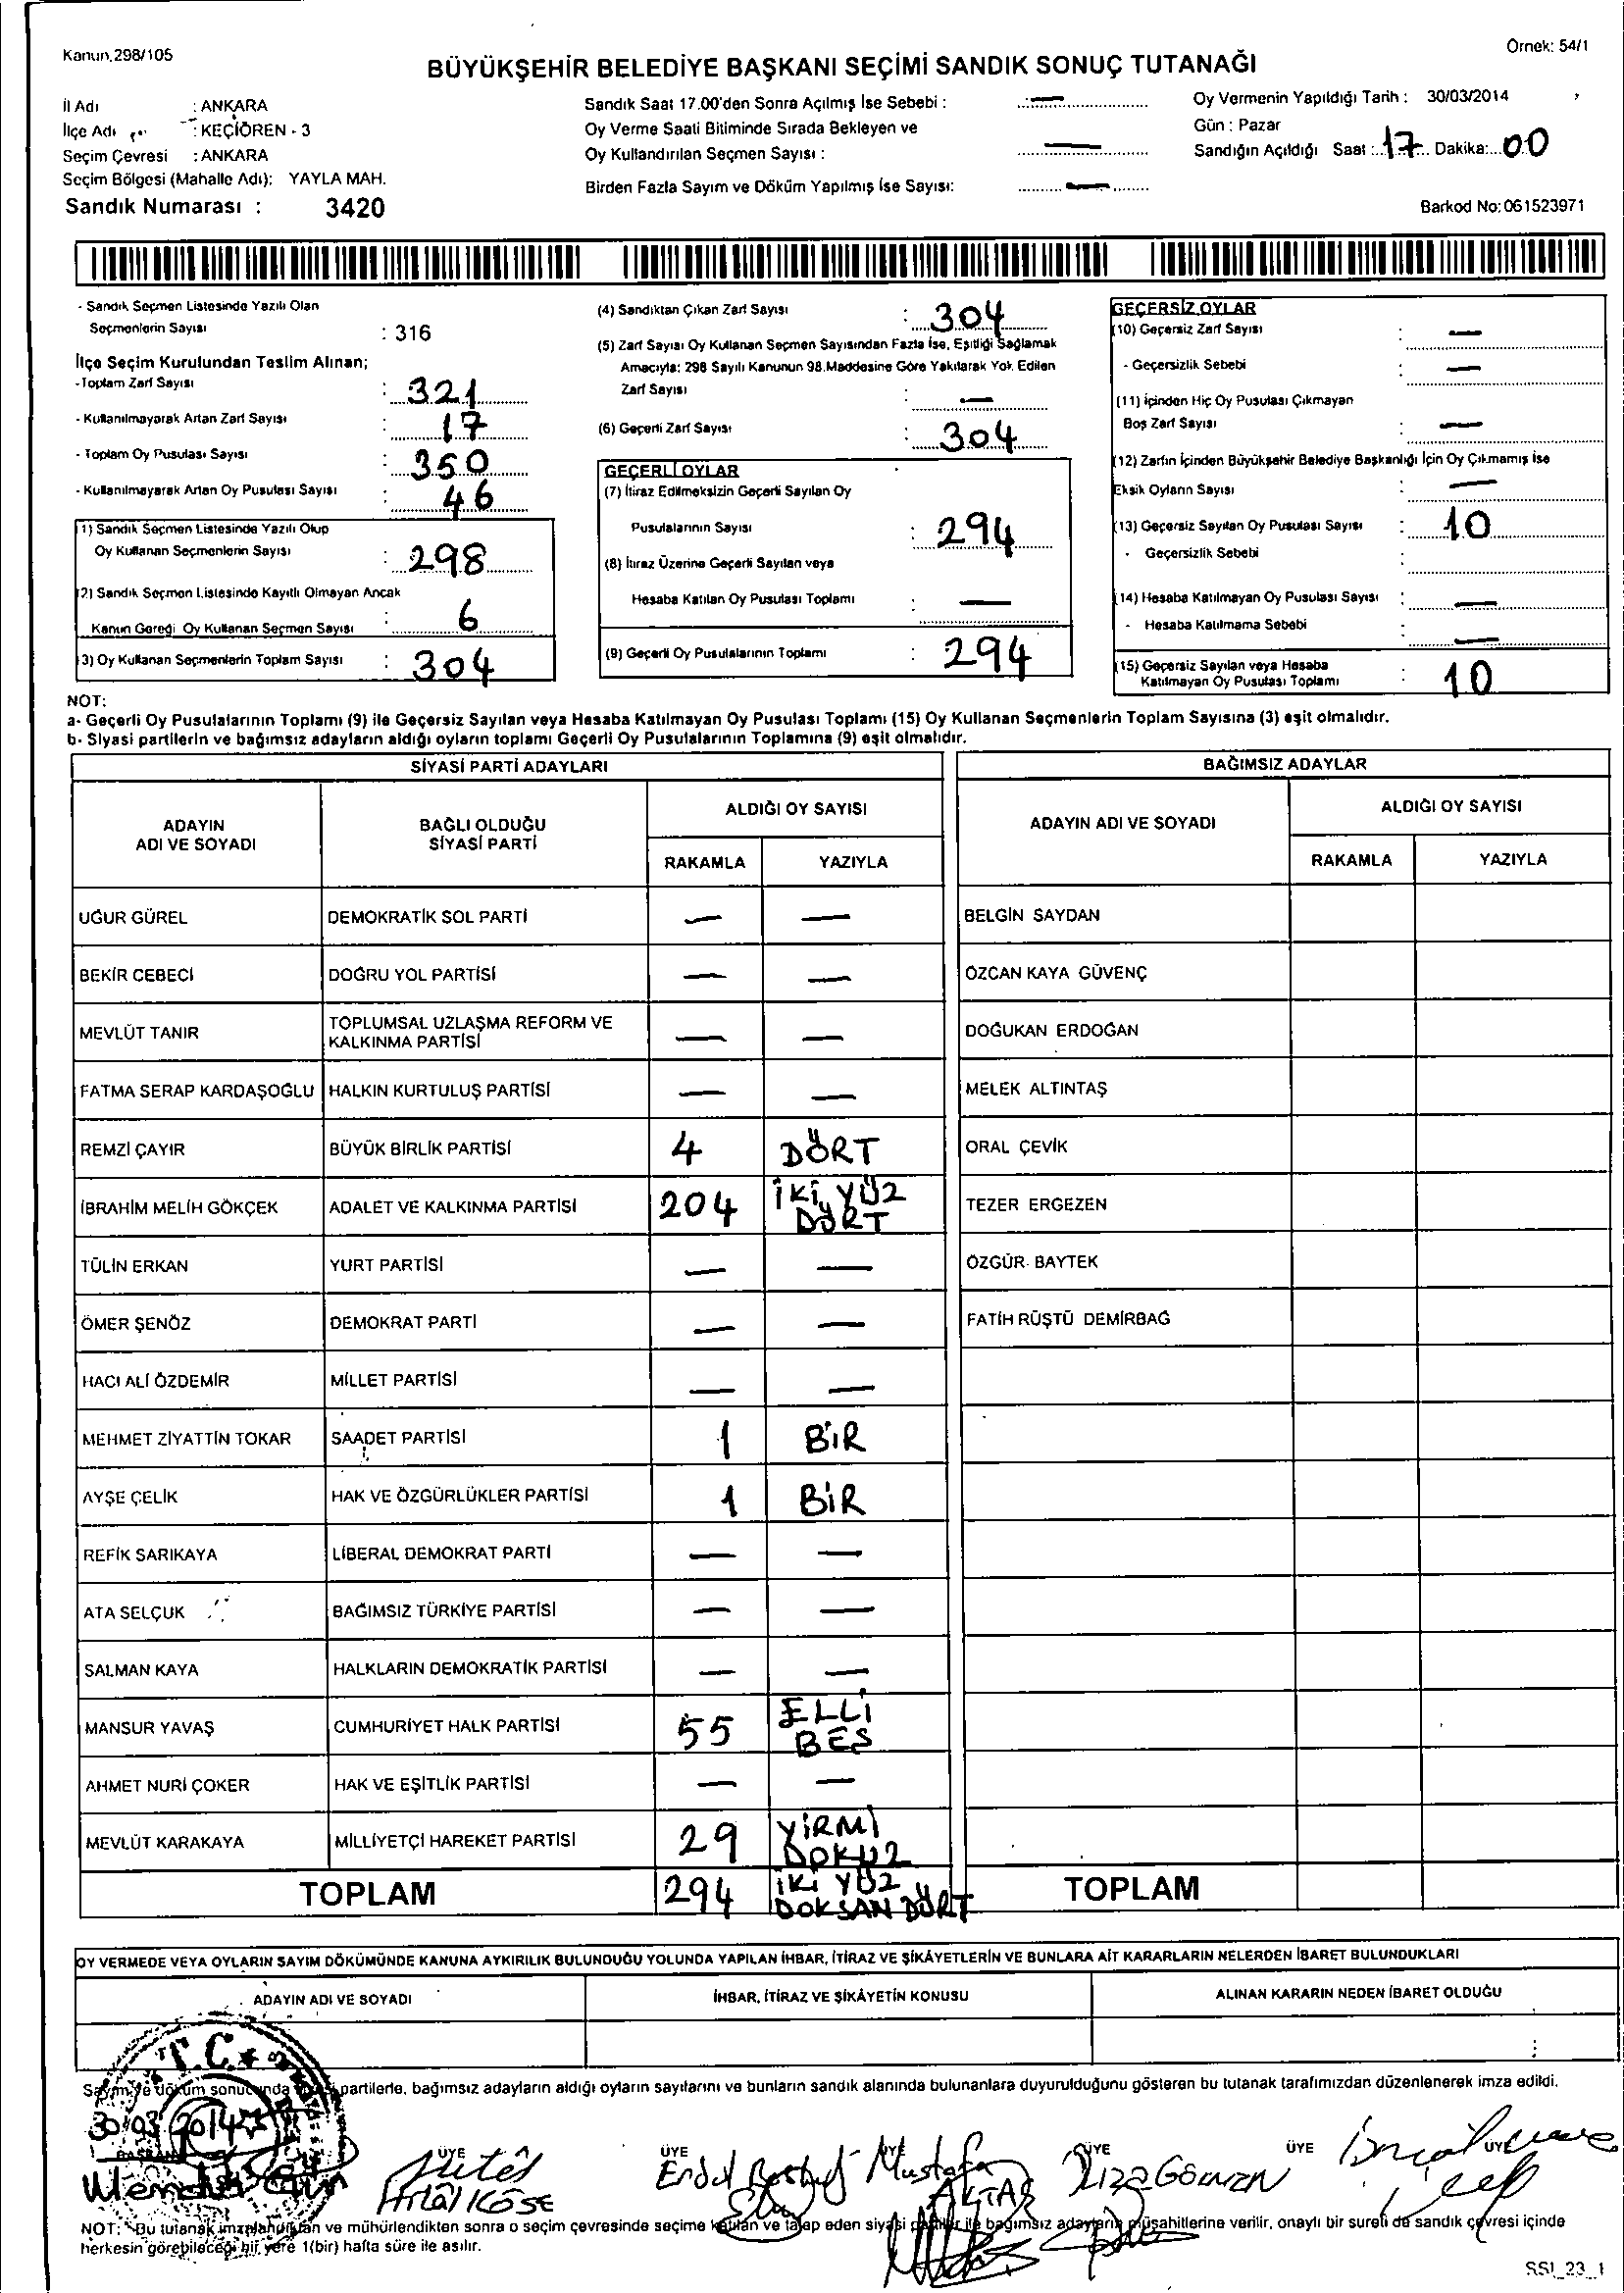 Kanun.298/105
Örnek: 54/1
BÜYÜKŞEHİR BELEDİYE BAŞKANI SEÇİMİ SANDIK SONUÇ TUTANAĞI
İl Adı : ANKARA
İlçe Adı : KEÇİÖREN - 3
Seçim Çevresi : ANKARA
Seçim Bölgesi (Mahalle Adı): YAYLA MAH.
Sandık Numarası : 3420
Sandık Saat 17.00'den Sonra Açılmış İse Sebebi : —
Oy Verme Saati Bitiminde Sırada Bekleyen ve
Oy Kullandırılan Seçmen Sayısı : —
Birden Fazla Sayım ve Döküm Yapılmış İse Sayısı: —
Oy Vermenin Yapıldığı Tarih : 30/03/2014
Gün : Pazar
Sandığın Açıldığı Saat : 17 Dakika: 00
Barkod No: 061523971
- Sandık Seçmen Listesinde Yazılı Olan
Seçmenlerin Sayısı : 316
İlçe Seçim Kurulundan Teslim Alınan;
-Toplam Zarf Sayısı : 321
- Kullanılmayarak Artan Zarf Sayısı : 17
- Toplam Oy Pusulası Sayısı : 350
- Kullanılmayarak Artan Oy Pusulası Sayısı : 46
(1) Sandık Seçmen Listesinde Yazılı Olup
Oy Kullanan Seçmenlerin Sayısı : 298
(2) Sandık Seçmen Listesinde Kayıtlı Olmayan Ancak
Kanun Gereği Oy Kullanan Seçmen Sayısı : 6
(3) Oy Kullanan Seçmenlerin Toplam Sayısı : 304
(4) Sandıktan Çıkan Zarf Sayısı : 304
(5) Zarf Sayısı Oy Kullanan Seçmen Sayısından Fazla İse, Eşitliği Sağlamak
Amacıyla; 298 Sayılı Kanunun 98.Maddesine Göre Yakılarak Yok Edilen
Zarf Sayısı : —
(6) Geçerli Zarf Sayısı : 304
GEÇERLİ OYLAR
(7) İtiraz Edilmeksizin Geçerli Sayılan Oy
Pusulalarının Sayısı : 294
(8) İtiraz Üzerine Geçerli Sayılan veya
Hesaba Katılan Oy Pusulası Toplamı : —
(9) Geçerli Oy Pusulalarının Toplamı : 294
GEÇERSİZ OYLAR
(10) Geçersiz Zarf Sayısı : —
- Geçersizlik Sebebi : —
(11) İçinden Hiç Oy Pusulası Çıkmayan
Boş Zarf Sayısı : —
(12) Zarfın İçinden Büyükşehir Belediye Başkanlığı İçin Oy Çıkmamış İse
Eksik Oyların Sayısı : —
(13) Geçersiz Sayılan Oy Pusulası Sayısı : 10
- Geçersizlik Sebebi :
(14) Hesaba Katılmayan Oy Pusulası Sayısı : —
- Hesaba Katılmama Sebebi : —
(15) Geçersiz Sayılan veya Hesaba
Katılmayan Oy Pusulası Toplamı : 10
NOT:
a- Geçerli Oy Pusulalarının Toplamı (9) ile Geçersiz Sayılan veya Hesaba Katılmayan Oy Pusulası Toplamı (15) Oy Kullanan Seçmenlerin Toplam Sayısına (3) eşit olmalıdır.
b- Siyasi partilerin ve bağımsız adayların aldığı oyların toplamı Geçerli Oy Pusulalarının Toplamına (9) eşit olmalıdır.
SİYASİ PARTİ ADAYLARI
ADAYIN ADI VE SOYADI
BAĞLI OLDUĞU SİYASİ PARTİ
ALDIĞI OY SAYISI
RAKAMLA YAZIYLA
UĞUR GÜREL DEMOKRATİK SOL PARTİ — —
BEKİR CEBECİ DOĞRU YOL PARTİSİ — —
MEVLÜT TANIR TOPLUMSAL UZLAŞMA REFORM VE KALKINMA PARTİSİ — —
FATMA SERAP KARDAŞOĞLU HALKIN KURTULUŞ PARTİSİ — —
REMZİ ÇAYIR BÜYÜK BİRLİK PARTİSİ 4 DÖRT
İBRAHİM MELİH GÖKÇEK ADALET VE KALKINMA PARTİSİ 204 İKİ YÜZ DÖRT
TÜLİN ERKAN YURT PARTİSİ — —
ÖMER ŞENÖZ DEMOKRAT PARTİ — —
HACI ALİ ÖZDEMİR MİLLET PARTİSİ — —
MEHMET ZİYATTİN TOKAR SAADET PARTİSİ 1 BİR
AYŞE ÇELİK HAK VE ÖZGÜRLÜKLER PARTİSİ 1 BİR
REFİK SARIKAYA LİBERAL DEMOKRAT PARTİ — —
ATA SELÇUK BAĞIMSIZ TÜRKİYE PARTİSİ — —
SALMAN KAYA HALKLARIN DEMOKRATİK PARTİSİ — —
MANSUR YAVAŞ CUMHURİYET HALK PARTİSİ 55 ELLİ BEŞ
AHMET NURİ ÇOKER HAK VE EŞİTLİK PARTİSİ — —
MEVLÜT KARAKAYA MİLLİYETÇİ HAREKET PARTİSİ 29 YİRMİ DOKUZ
TOPLAM 294 İKİ YÜZ DOKSAN DÖRT
BAĞIMSIZ ADAYLAR
ADAYIN ADI VE SOYADI
ALDIĞI OY SAYISI
RAKAMLA YAZIYLA
BELGİN SAYDAN
ÖZCAN KAYA GÜVENÇ
DOĞUKAN ERDOĞAN
MELEK ALTINTAŞ
ORAL ÇEVİK
TEZER ERGEZEN
ÖZGÜR BAYTEK
FATİH RÜŞTÜ DEMİRBAĞ
TOPLAM
OY VERMEDE VEYA OYLARIN SAYIM DÖKÜMÜNDE KANUNA AYKIRILIK BULUNDUĞU YOLUNDA YAPILAN İHBAR, İTİRAZ VE ŞİKÂYETLERİN VE BUNLARA AİT KARARLARIN NELERDEN İBARET BULUNDUKLARI
ADAYIN ADI VE SOYADI İHBAR, İTİRAZ VE ŞİKÂYETİN KONUSU ALINAN KARARIN NEDEN İBARET OLDUĞU
T.C.
Sayım ve döküm sonucunda partilerle, bağımsız adayların aldığı oyların sayılarını ve bunların sandık alanında bulunanlara duyurulduğunu gösteren bu tutanak tarafımızdan düzenlenerek imza edildi.
30.03.2014
BAŞKAN ÜYE ÜYE ÜYE ÜYE ÜYE ÜYE
Hilâl KÖSE
Mustafa AKTAŞ
NOT: Bu tutanak imzalandıktan ve mühürlendikten sonra o seçim çevresinde seçime katılan ve talep eden siyasi partiler ile bağımsız adayların müşahitlerine verilir, onaylı bir sureti de sandık çevresi içinde
herkesin görebileceği bir yere 1(bir) hafta süre ile asılır.
SSI_23_1